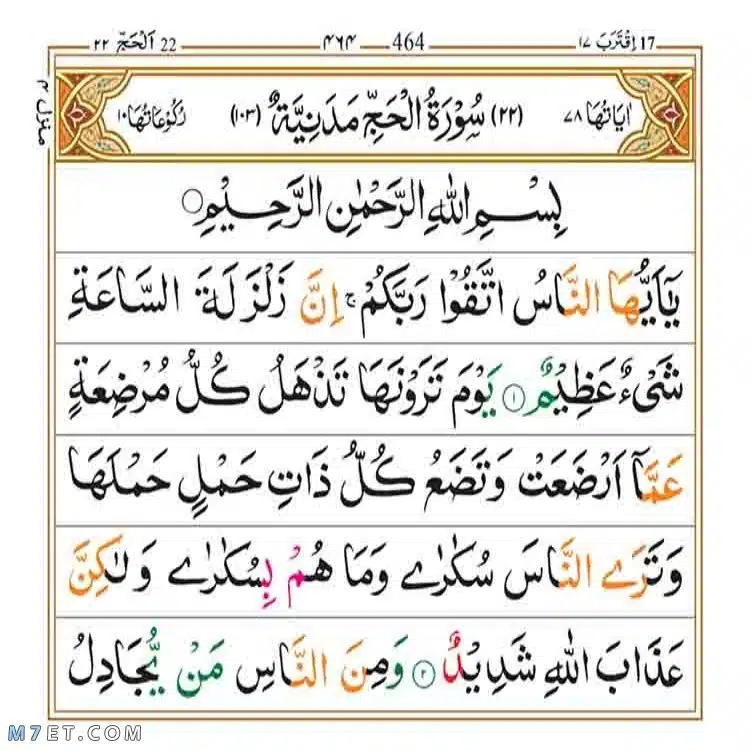 اِقْتَرَبَ 17 ١٧ 464 ٤٦٤ 22 اَلْحَجّ ٢٢
منزل ٤
اٰيَاتُهَا ٧٨ (٢٢) سُوْرَةُ الْحَجِّ مَدَنِيَّةٌ (١٠٣) رُكُوْعَاتُهَا ١٠
بِسْمِ اللّٰهِ الرَّحْمٰنِ الرَّحِيْمِ
يٰۤاَيُّهَا النَّاسُ اتَّقُوْا رَبَّكُمْ ۚ اِنَّ زَلْزَلَةَ السَّاعَةِ
شَىْءٌ عَظِيْمٌ ۝١ يَوْمَ تَرَوْنَهَا تَذْهَلُ كُلُّ مُرْضِعَةٍ
عَمَّاۤ اَرْضَعَتْ وَتَضَعُ كُلُّ ذَاتِ حَمْلٍ حَمْلَهَا
وَتَرَے النَّاسَ سُكٰرٰے وَمَا هُمْ بِسُكٰرٰے وَلٰكِنَّ
عَذَابَ اللّٰهِ شَدِيْدٌ ۝٢ وَمِنَ النَّاسِ مَنْ يُّجَادِلُ
M7ET.COM